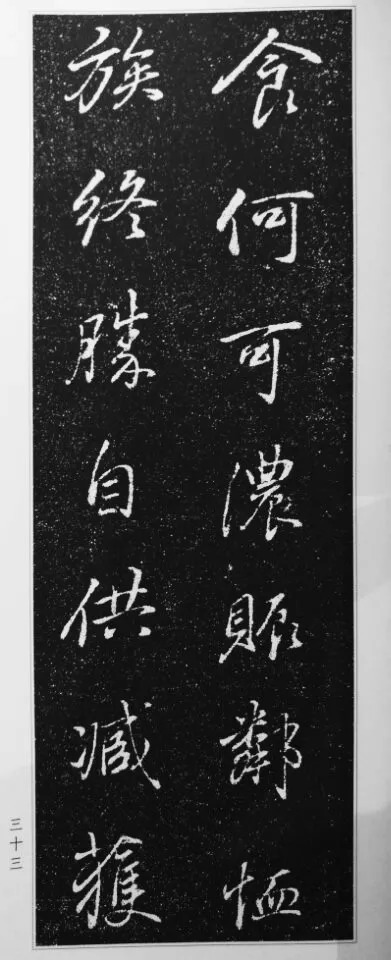 食何可濃賑鄰恤
族終勝自供減獲
三十三